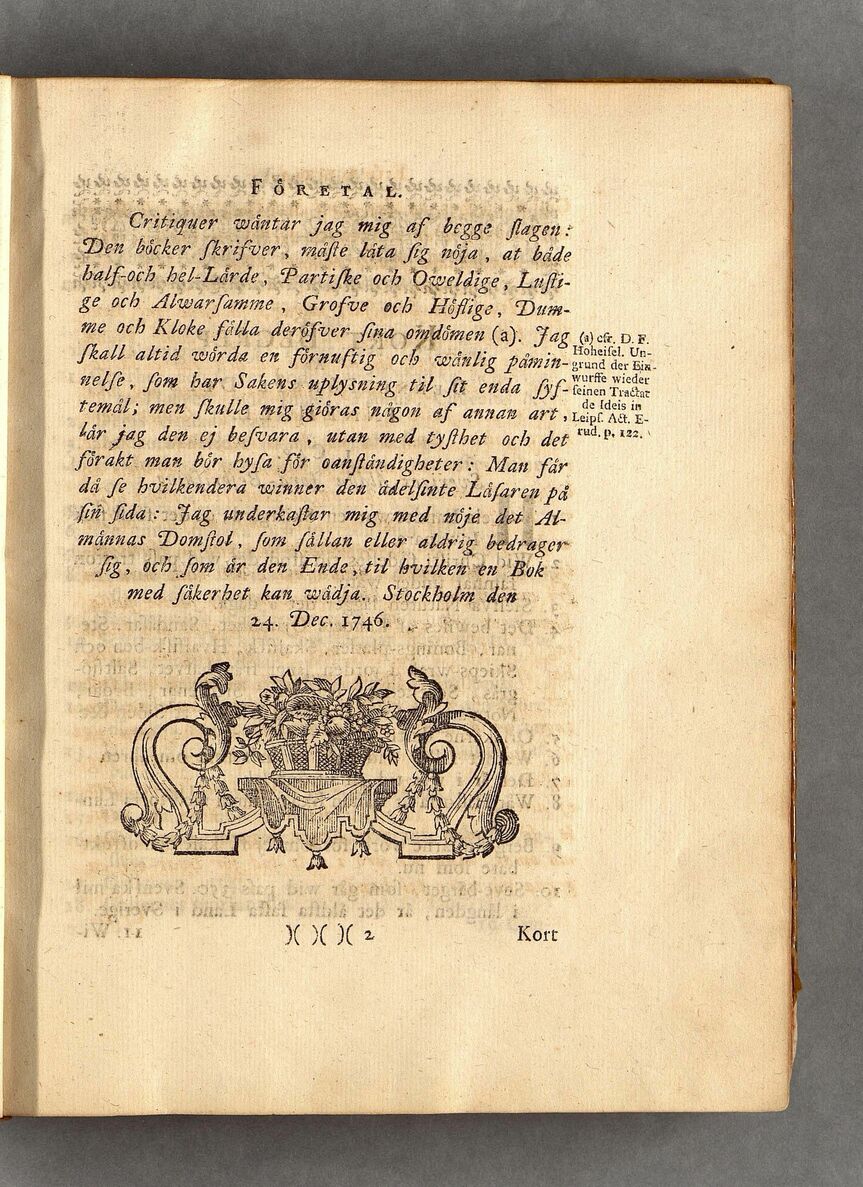 FÖRETAL.
Critiquer wäntar jag mig af begge slagen:
Den böcker skrifver, måste låta sig nöja, at både
half-och hel-Lärde, Partiske och Oweldige, Lusti-
ge och Alwarsamme, Grofve och Höflige, Dum-
me och Kloke fälla deröfver sina omdömen (a). Jag
skall altid wörda en förnuftig och wänlig påmin-
nelse, som har Sakens uplysning til sit enda syf-
temål; men skulle mig giöras någon af annan art,
lår jag den ej besvara, utan med tysthet och det
förakt man bör hysa för oanständigheter: Man får
då se hvilkendera winner den ädelsinte Läsaren på
sin sida: Jag underkastar mig med nöje det Al-
männas Domstol, som sällan eller aldrig bedrager
sig, och som är den Ende, til hvilken en Bok
med säkerhet kan wädja. Stockholm den
24. Dec. 1746.
(a) cfr. D. F.
Hoheisel. Un-
grund der Ein-
wurffe wieder
seinen Tractat
de Ideis in
Leips. Act. E-
rud. p. 122.
)( )( )( 2
Kort